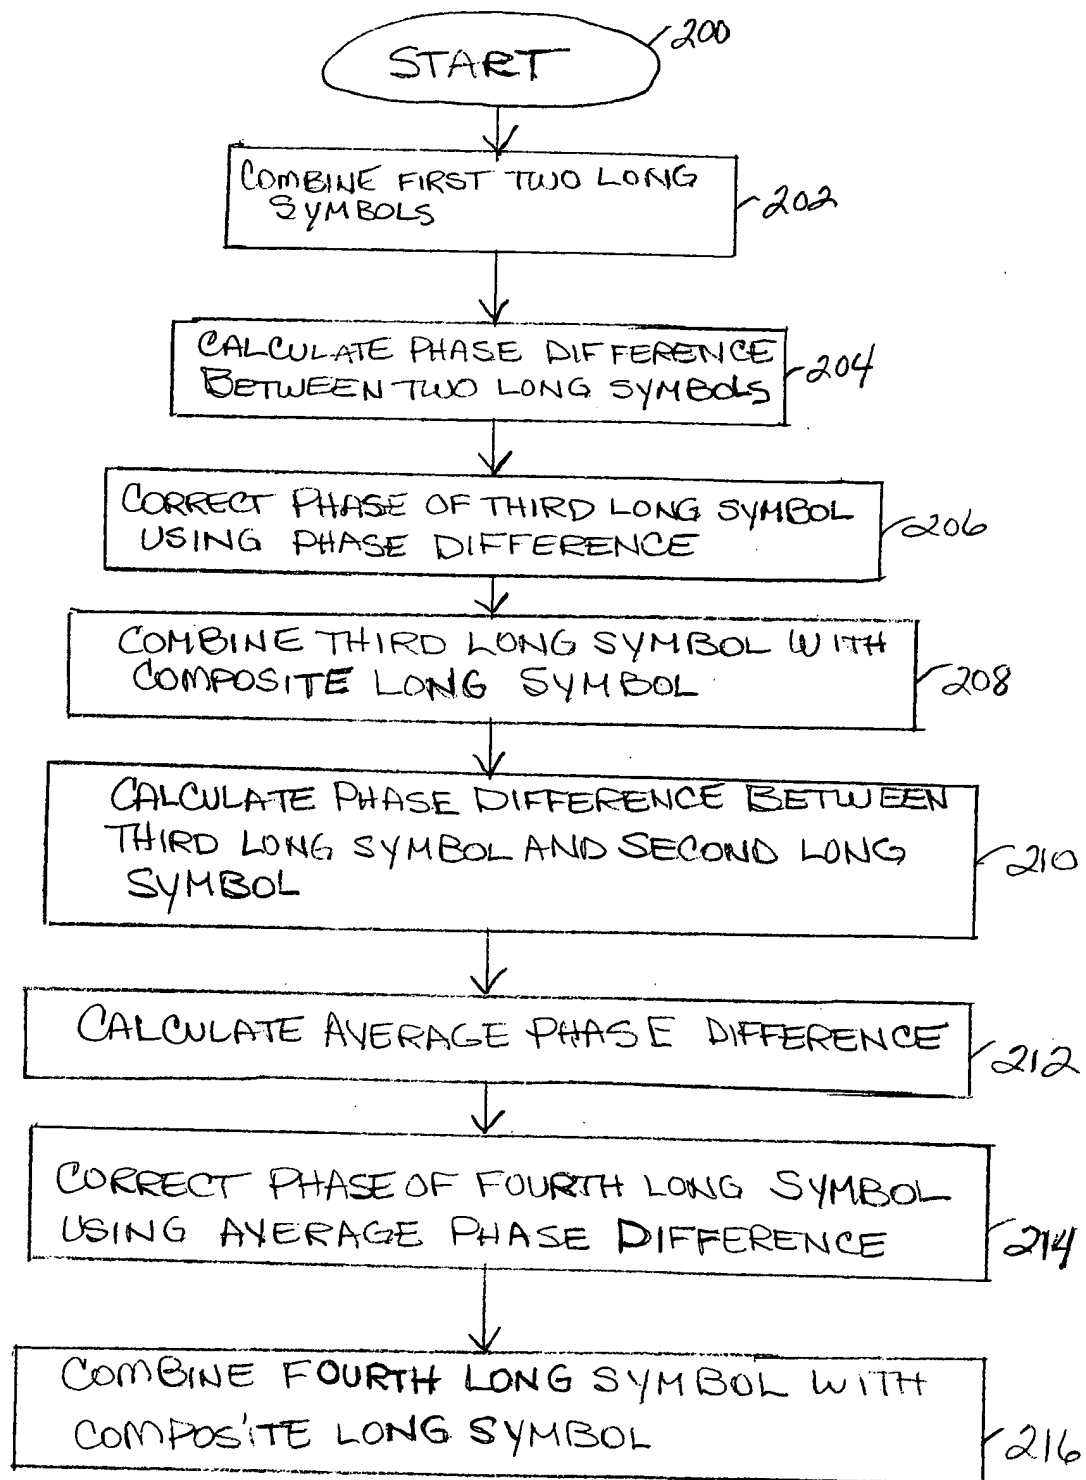 START
200
COMBINE FIRST TWO LONG
SYMBOLS
202
CALCULATE PHASE DIFFERENCE
BETWEEN TWO LONG SYMBOLS
204
CORRECT PHASE OF THIRD LONG SYMBOL
USING PHASE DIFFERENCE
206
COMBINE THIRD LONG SYMBOL WITH
COMPOSITE LONG SYMBOL
208
CALCULATE PHASE DIFFERENCE BETWEEN
THIRD LONG SYMBOL AND SECOND LONG
SYMBOL
210
CALCULATE AVERAGE PHASE DIFFERENCE
212
CORRECT PHASE OF FOURTH LONG SYMBOL
USING AVERAGE PHASE DIFFERENCE
214
COMBINE FOURTH LONG SYMBOL WITH
COMPOSITE LONG SYMBOL
216